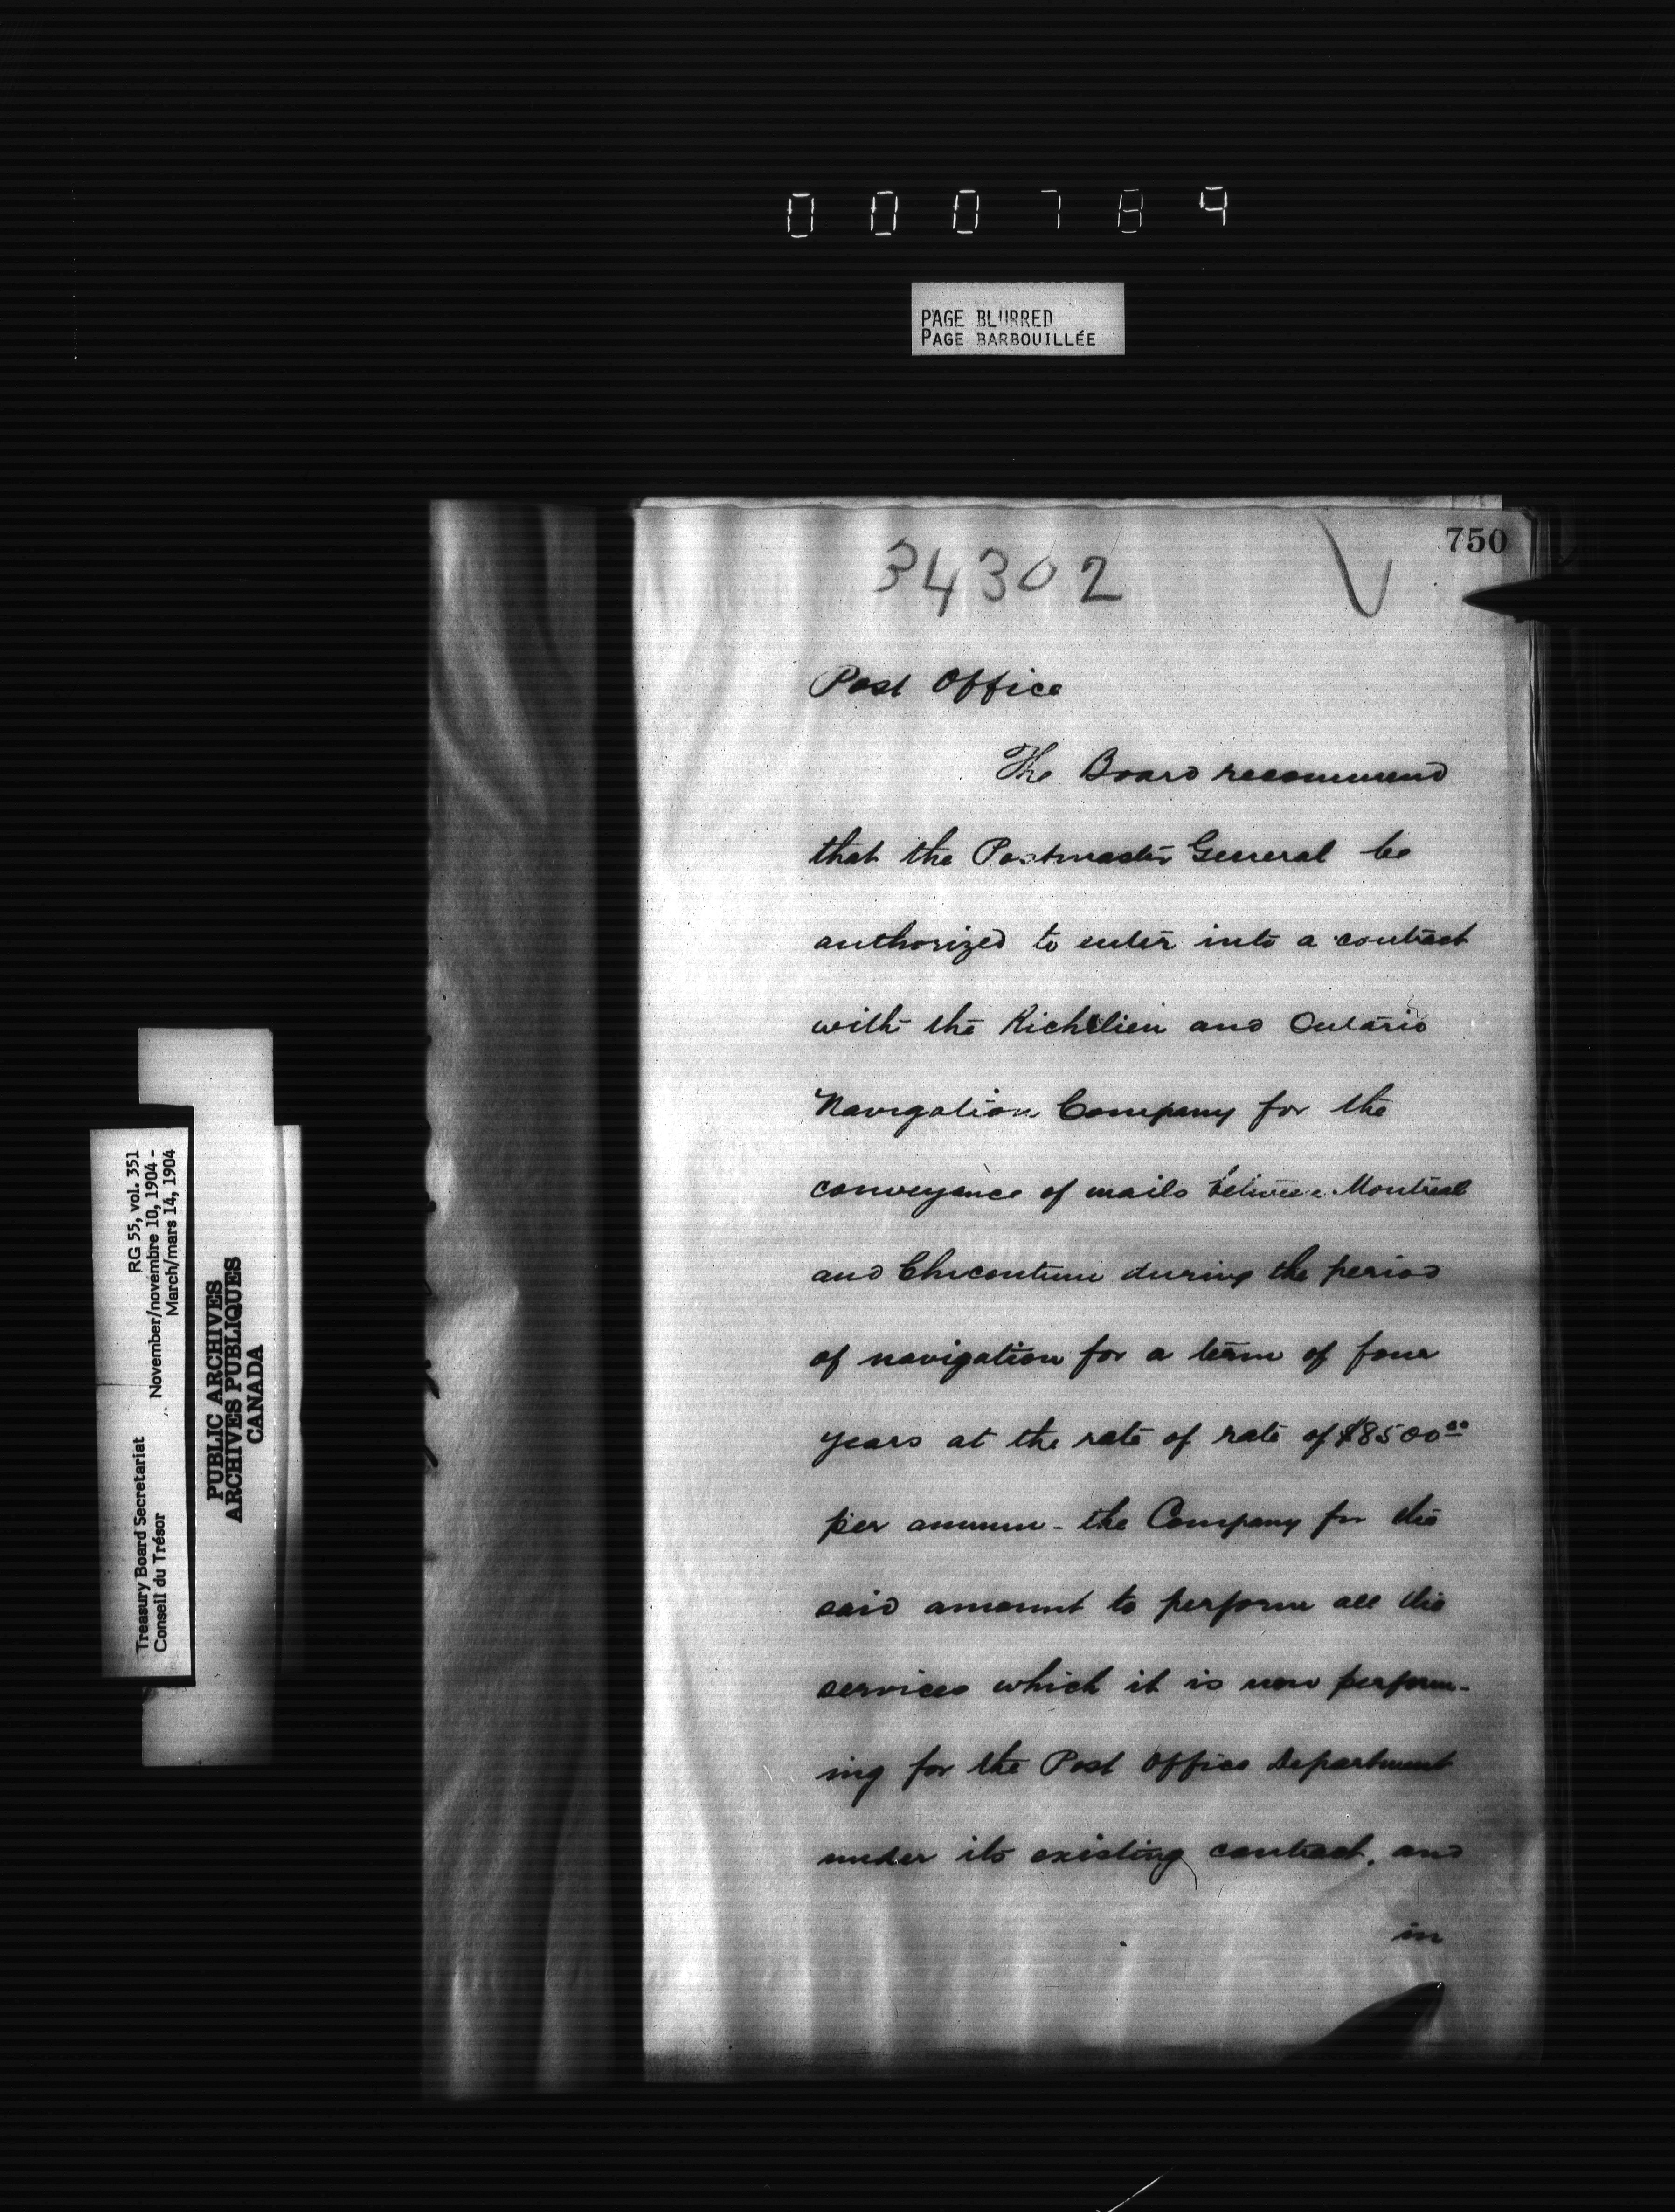 000784
PAGE BLURRED
PAGE BARBOUILLÉE
750
34302
Post Office
The Board recommend
that the Postmaster General be
authorized to enter into a contract
with the Richelieu and Ontario
Navigation Company for the
conveyance of mails between Montreal
and Chicoutimi during the period
of navigation for a term of four
years at the rate of rate of $8500 00
per annum - the Company for the
said amount to perform all the
services which it is now perform-
ing for the Post Office Department
under its existing contract, and
in
Treasury Board Secretariat RG 55, vol. 351
Conseil du Trésor November/novembre 10, 1904 -
March/mars 14, 1904
PUBLIC ARCHIVES
ARCHIVES PUBLIQUES
CANADA